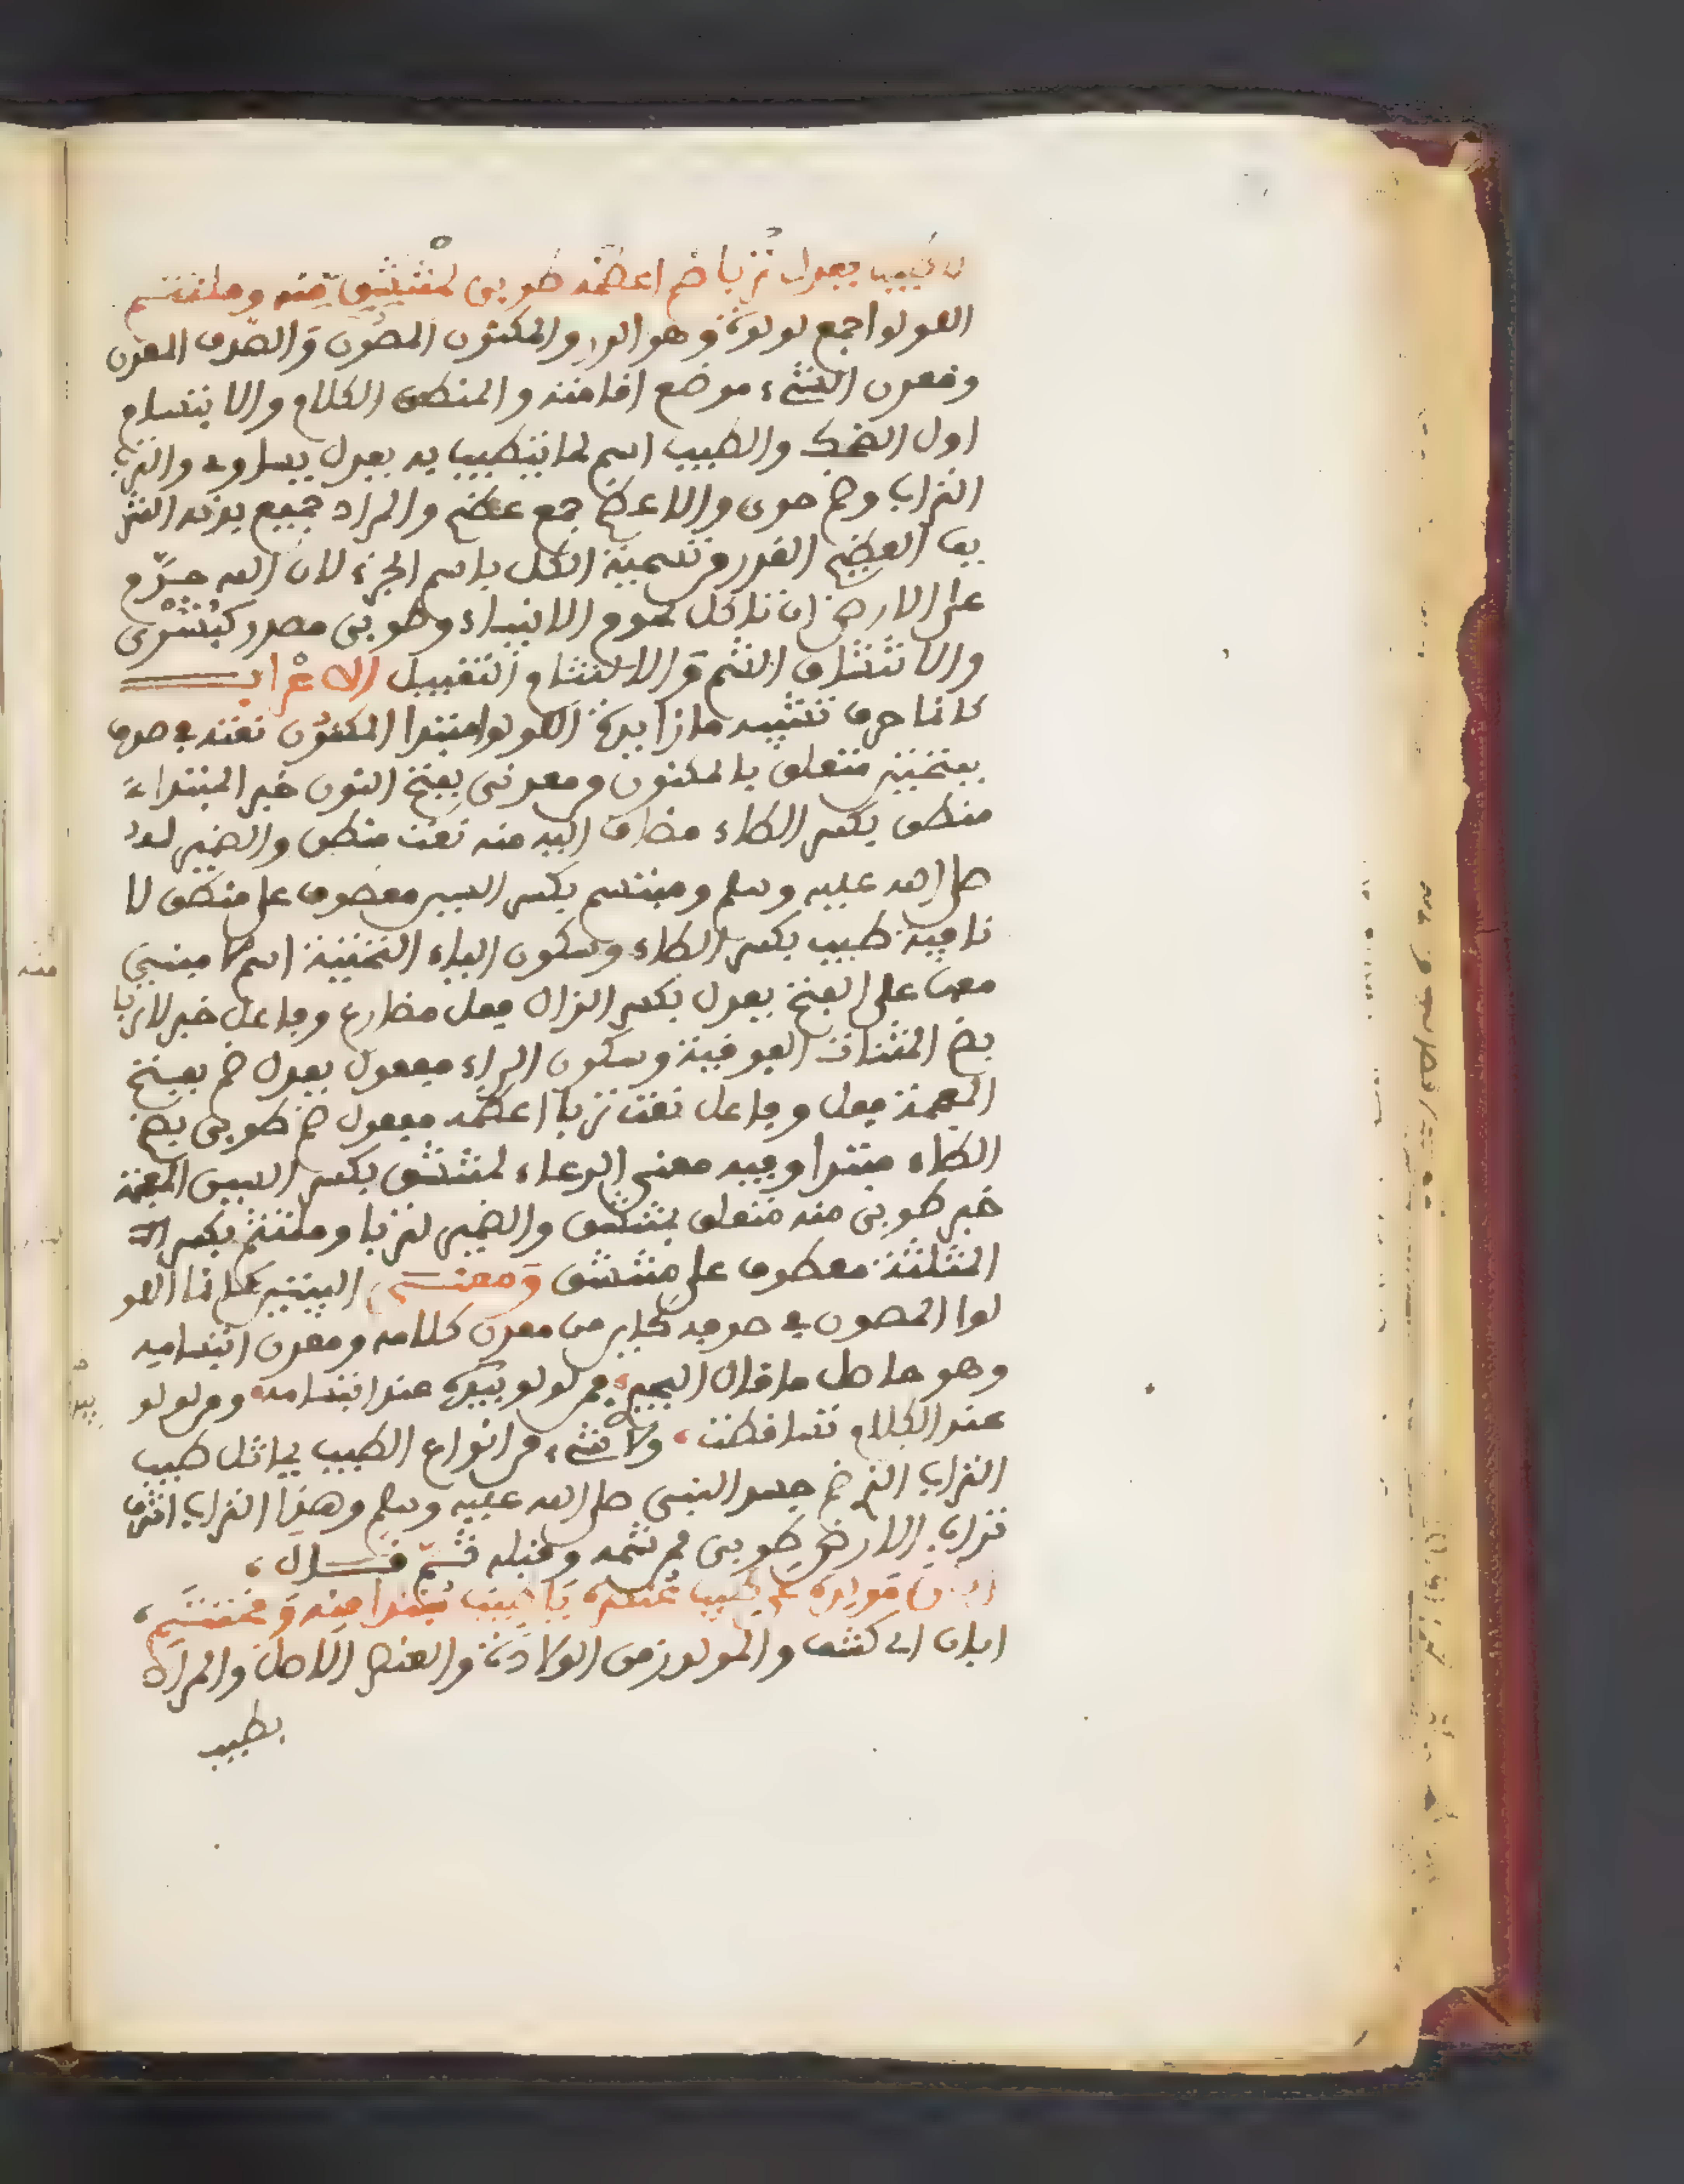 لا طيب يعدل تربا ضم اعظمه طوبى لمنتشق منه وملتثم
اللولوا جمع لولوة وهو الدر والمكنون المصون والصدف المعدن
ومعدن الشيء موضع اقامته والمنطق الكلام والابتسام
اول الضحك والطيب اسم لما يتطيب به يعدل يساوي والترب
التراب وضم حوى والاعظم جمع عظم والمراد جميع بدنه الشر
يف العظيم القدر من تسمية الكل باسم الجزء لان الله حرّم
على الارض ان تاكل لحوم الانبياء وطوبى مصدر كبُشْرى
والانتشاق الشم والالتثام التقبيل الاعراب
كانما حرف تشبيه ما زايدة اللولوا مبتدا المكنون نعته في صدف
بفتحتين متعلق بالمكنون ومعدني بفتح النون خبر المبتداء
منطق بكسر الطاء مضاف اليه منه نعت منطق والضمير له
صلى الله عليه وسلم ومبتسم بكسر السين معطوف على منطق لا
نافية طيب بكسر الطاء وسكون الياء التحتية اسم لا مبني
معها على الفتح يعدل بكسر الدال فعل مضارع وفاعل خبر لا تربا
بضم المثنات الفوقية وسكون الراء مفعول يعدل ضم بفتح
المعجمة فعل وفاعل نعت تربا اعظمه مفعول ضم طوبى بضم
الطاء مبتدا وفيه معنى الدعاء لمنتشق بكسر الشين المعجمة
خبر طوبى منه متعلق بمنتشق والضمير لتربا وملتثم بكسر الث
المثلثة معطوف على منتشق ومعنى البيتين كانما اللو
لوا المصون في صدفه كاين من معدن كلامه ومعدن ابتسامه
وهو حاصل ما قال البحتري فمن لولو تبديه عند ابتسامه ومن لولو
عند الكلام تساقطت ولا شيء من انواع الطيب يماثل طيب
التراب الذي ضم جسد النبي صلى الله عليه وسلم وهذا التراب اشرف
تراب الارض طوبى لمن شمه وقبله ثم قال
ابان مولده عن طيب عنصره يا طيب مبتدا منه ومختتم
ابان اي كشف والمولد زمن الولادة والعنصر الاصل والمراد
بطيب